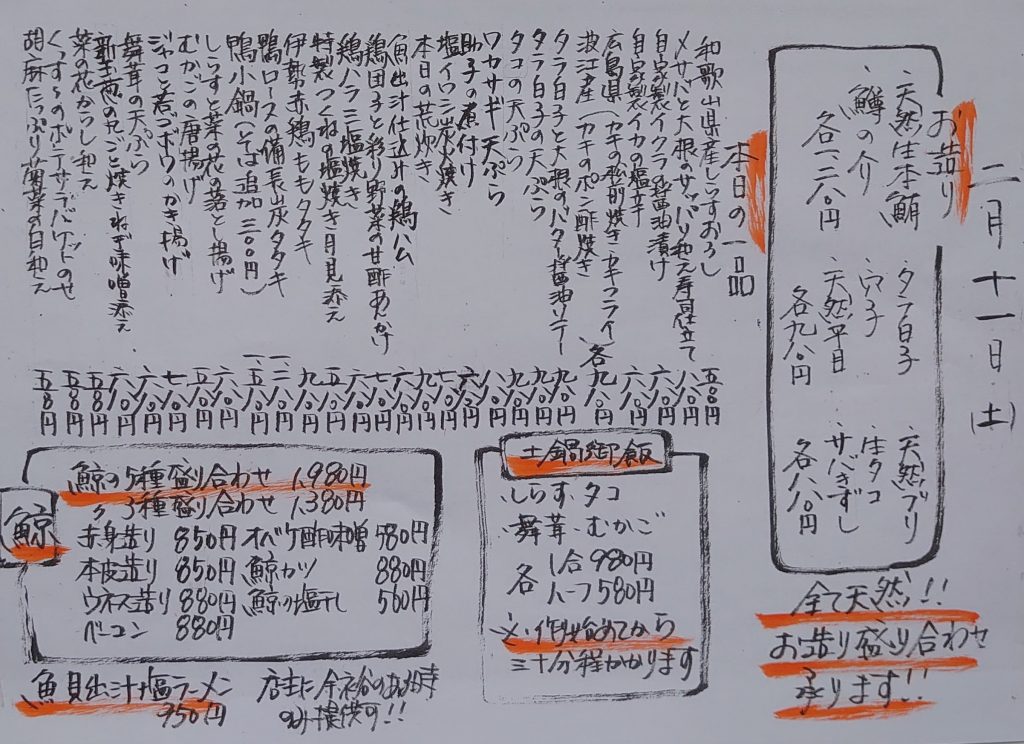 二月十一日(土)
お造り
・天然生本鮪
・鱒の介
各一二八〇円
タラ白子
穴子
天然平目
各九八〇円
天然ブリ
生タコ
サバきずし
各八八〇円
全て天然!!
お造り盛り合わせ
承ります!!
本日の一品
和歌山県産しらすおろし 五八〇円
〆サバと大根のサッパリ和え寿司仕立て 八八〇円
自家製イクラの醤油漬け 六八〇円
自家製イカの塩辛 六八〇円
広島県 (カキの松前焼き・カキフライ 各
波江産 (カキのポン酢焼き 九八〇円
タラ白子と大根のバター醤油ソテー 九八〇円
タラ白子の天ぷら 九八〇円
タコの天ぷら 九八〇円
ワカサギ天ぷら 八八〇円
助子の煮付け 六八〇円
塩イワシ炭火焼き 七八〇円
本日の荒炊き 九八〇円
魚出汁仕込みの鶏ハム 六八〇円
鶏団子と彩り野菜の甘酢あんかけ 七八〇円
鶏ハラミ塩焼き 六八〇円
特製つくねの塩焼き月見添え 五八〇円
伊勢赤鶏ももタタキ 九八〇円
鴨ロースの備長炭タタキ 一二八〇円
鴨小鍋(そば追加三〇〇円) 一五八〇円
しらすと菜の花の落とし揚げ 六八〇円
むかごの唐揚げ 五八〇円
ジャコと煮ゴボウのかき揚げ 七八〇円
舞茸の天ぷら 六八〇円
新玉葱の丸ごと焼きねぎ味噌添え 六八〇円
菜の花からし和え 五八〇円
くんすうのポテサラバケットのせ 五八〇円
胡麻たっぷり菊菜の白和え 五八〇円
土鍋御飯
・しらす・タコ
・舞茸・むかご
各 1合980円
ハーフ580円
※作り始めてから
三十分程かかります
鯨
鯨の5種盛り合わせ 1,980円
〃 3種盛り合わせ 1,380円
赤身造り 850円 オバケ酢味噌 580円
本皮造り 850円 鯨カツ 880円
ウネス造り 880円 鯨の塩干し 560円
ベーコン 880円
魚貝出汁塩ラーメン
950円
店主に余裕のある時
のみ提供可!!